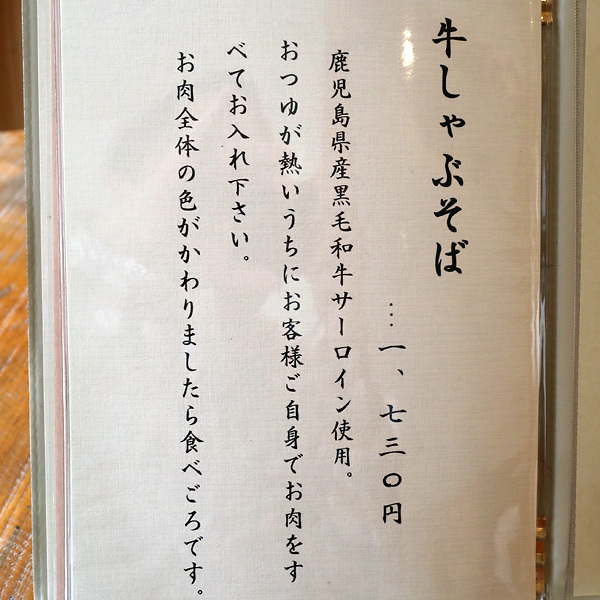 牛しゃぶそば
…一、七三〇円
鹿児島県産黒毛和牛サーロイン使用。
おつゆが熱いうちにお客様ご自身でお肉をす
べてお入れ下さい。
お肉全体の色がかわりましたら食べごろです。